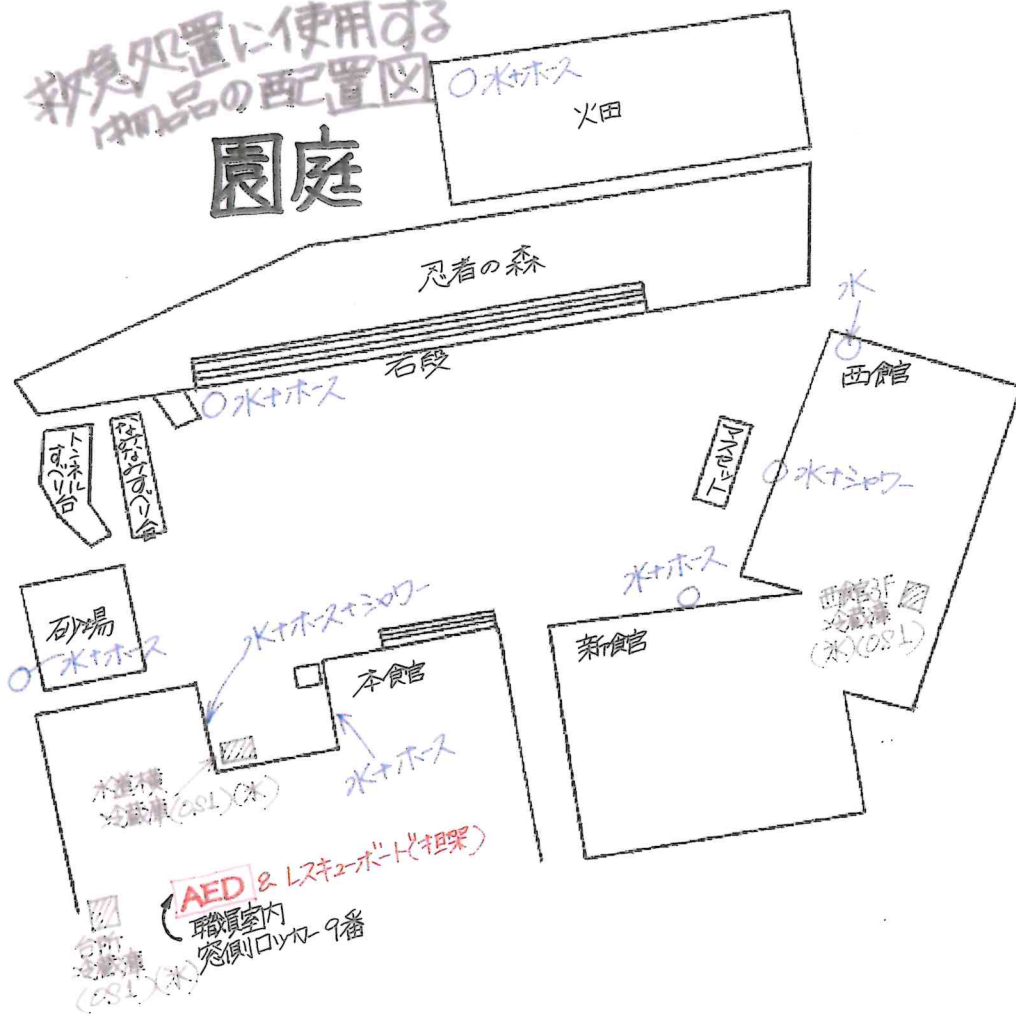 救急処置に使用する
物品の配置図
園庭
水+ホース
畑
忍者の森
石段
水+ホース
水
西館
トンネル
すべり台
なみなみすべり台
マスセット
水+シャワー
水+ホース
西館3F
冷蔵庫
(氷)(OS1)
砂場
水+ホース
水+ホース+シャワー
本館
新館
水+ホース
水道横
冷蔵庫(OS1)(氷)
AED & レスキューボード(担架)
職員室内
窓側ロッカー9番
台所
冷蔵庫
(OS1)(氷)